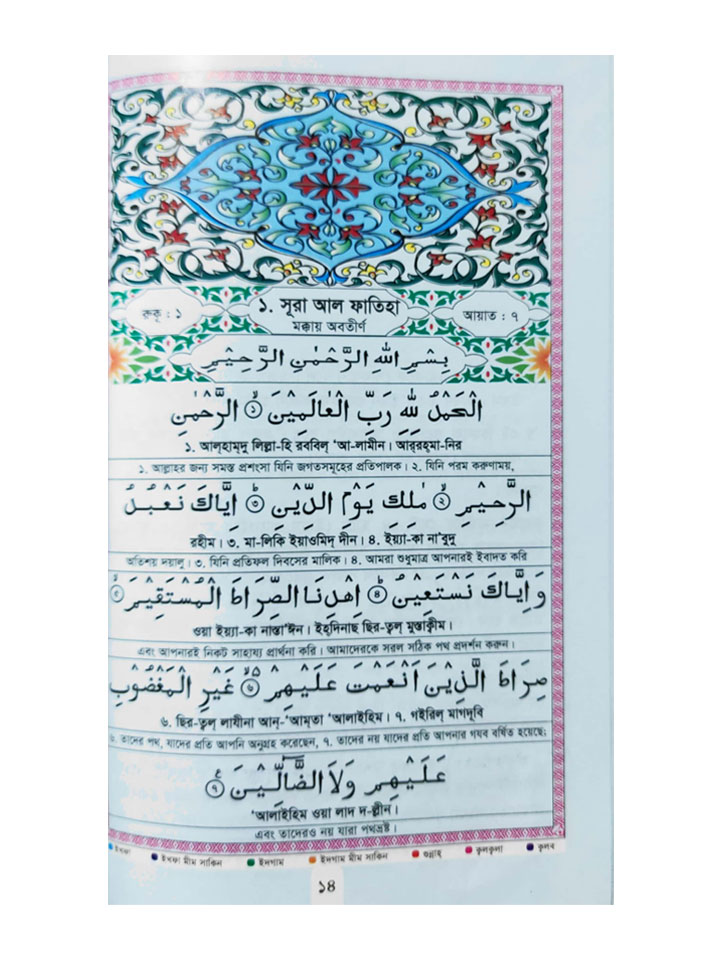 রুকু : ১
১. সূরা আল ফাতিহা
মক্কায় অবতীর্ণ
আয়াত : ৭
بِسْمِ اللّٰهِ الرَّحْمٰنِ الرَّحِيْمِ
اَلْحَمْدُ لِلّٰهِ رَبِّ الْعَالَمِيْنَ ۙ﴿۱﴾ الرَّحْمٰنِ
১. আল্‌হাম্‌দু লিল্লা-হি রববিল্‌ ‘আ-লামীন। আর্‌রহ্‌মা-নির
১. আল্লাহর জন্য সমস্ত প্রশংসা যিনি জগতসমূহের প্রতিপালক। ২. যিনি পরম করুণাময়,
الرَّحِيْمِ ۙ﴿۲﴾ مٰلِكِ يَوْمِ الدِّيْنِ ؕ﴿۳﴾ اِيَّاكَ نَعْبُدُ
রহীম। ৩. মা-লিকি ইয়াওমিদ্‌ দীন। ৪. ইয়্যা-কা না'বুদু
অতিশয় দয়ালু। ৩. যিনি প্রতিফল দিবসের মালিক। ৪. আমরা শুধুমাত্র আপনারই ইবাদত করি
وَ اِيَّاكَ نَسْتَعِيْنُ ؕ﴿۴﴾ اِهْدِنَا الصِّرَاطَ الْمُسْتَقِيْمَ ۙ﴿۵﴾
ওয়া ইয়্যা-কা নাস্তা‘ঈন। ইহ্‌দিনাছ ছির-ত্বল্‌ মুস্তাক্বীম।
এবং আপনারই নিকট সাহায্য প্রার্থনা করি। আমাদেরকে সরল সঠিক পথ প্রদর্শন করুন।
صِرَاطَ الَّذِيْنَ اَنْعَمْتَ عَلَيْهِمْ ۙ۬﴿۶﴾ غَيْرِ الْمَغْضُوْبِ
৬. ছির-ত্বল্‌ লাযীনা আন্‌-‘আম্‌তা ‘আলাইহিম। ৭. গইরিল্‌ মাগদূবি
৬. তাদের পথ, যাদের প্রতি আপনি অনুগ্রহ করেছেন, ৭. তাদের নয় যাদের প্রতি আপনার গযব বর্ষিত হয়েছে;
عَلَيْهِمْ وَلَا الضَّآلِّيْنَ ﴿۷﴾
‘আলাইহিম ওয়া লাদ দ-ল্লীন।
এবং তাদেরও নয় যারা পথভ্রষ্ট।
ইখফা ইখফা মীম সাকিন ইদগাম ইদগাম মীম সাকিন গুন্নাহ্‌ কুলকুলা কুলব
১৪